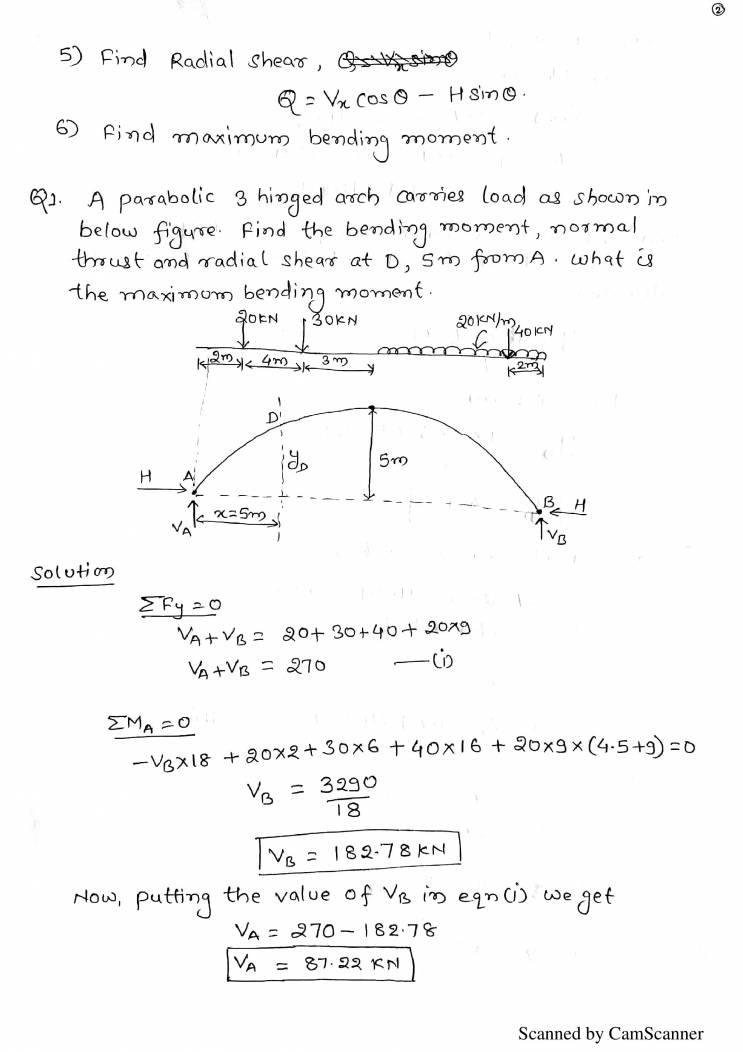 ②
5) Find Radial shear,
Q = Vx Cos θ - H Sin θ.
6) Find maximum bending moment.
Q1. A parabolic 3 hinged arch carries load as shown in
below figure. Find the bending moment, normal
thrust and radial shear at D, 5m from A. What is
the maximum bending moment.
20KN 30KN 20KN/m 40KN
2m 4m 3m 2m
D
yD 5m
H A B H
VA x=5m VB
Solution
ΣFy = 0
VA + VB = 20 + 30 + 40 + 20×9
VA + VB = 270 —(i)
ΣMA = 0
-VB×18 + 20×2 + 30×6 + 40×16 + 20×9×(4.5+9) = 0
VB = 3290
18
VB = 182.78 KN
Now, putting the value of VB in eqn(i) we get
VA = 270 - 182.78
VA = 87.22 KN
Scanned by CamScanner